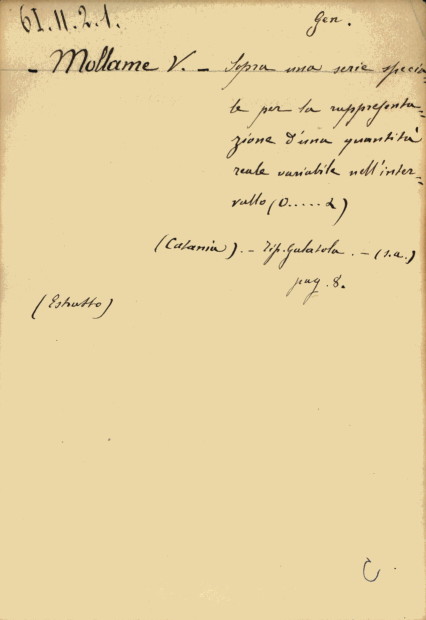 61.11.2.1.
Gen.
- Mollame V. - Sopra una serie specia=
le per la rappresenta=
zione d'una quantità
reale variabile nell'inter=
vallo (0.....α)
(Catania). - Tip. Galatola. - (s.a.)
pag. 8.
(Estratto)